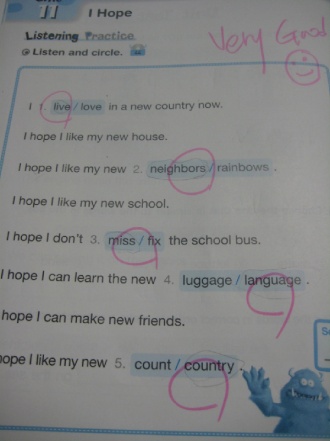 11 I Hope
Listening Practice
Very Good
Listen and circle.
I 1. live / love in a new country now.
I hope I like my new house.
I hope I like my new 2. neighbors / rainbows .
I hope I like my new school.
I hope I don't 3. miss / fix the school bus.
I hope I can learn the new 4. luggage / language .
hope I can make new friends.
hope I like my new 5. count / country .